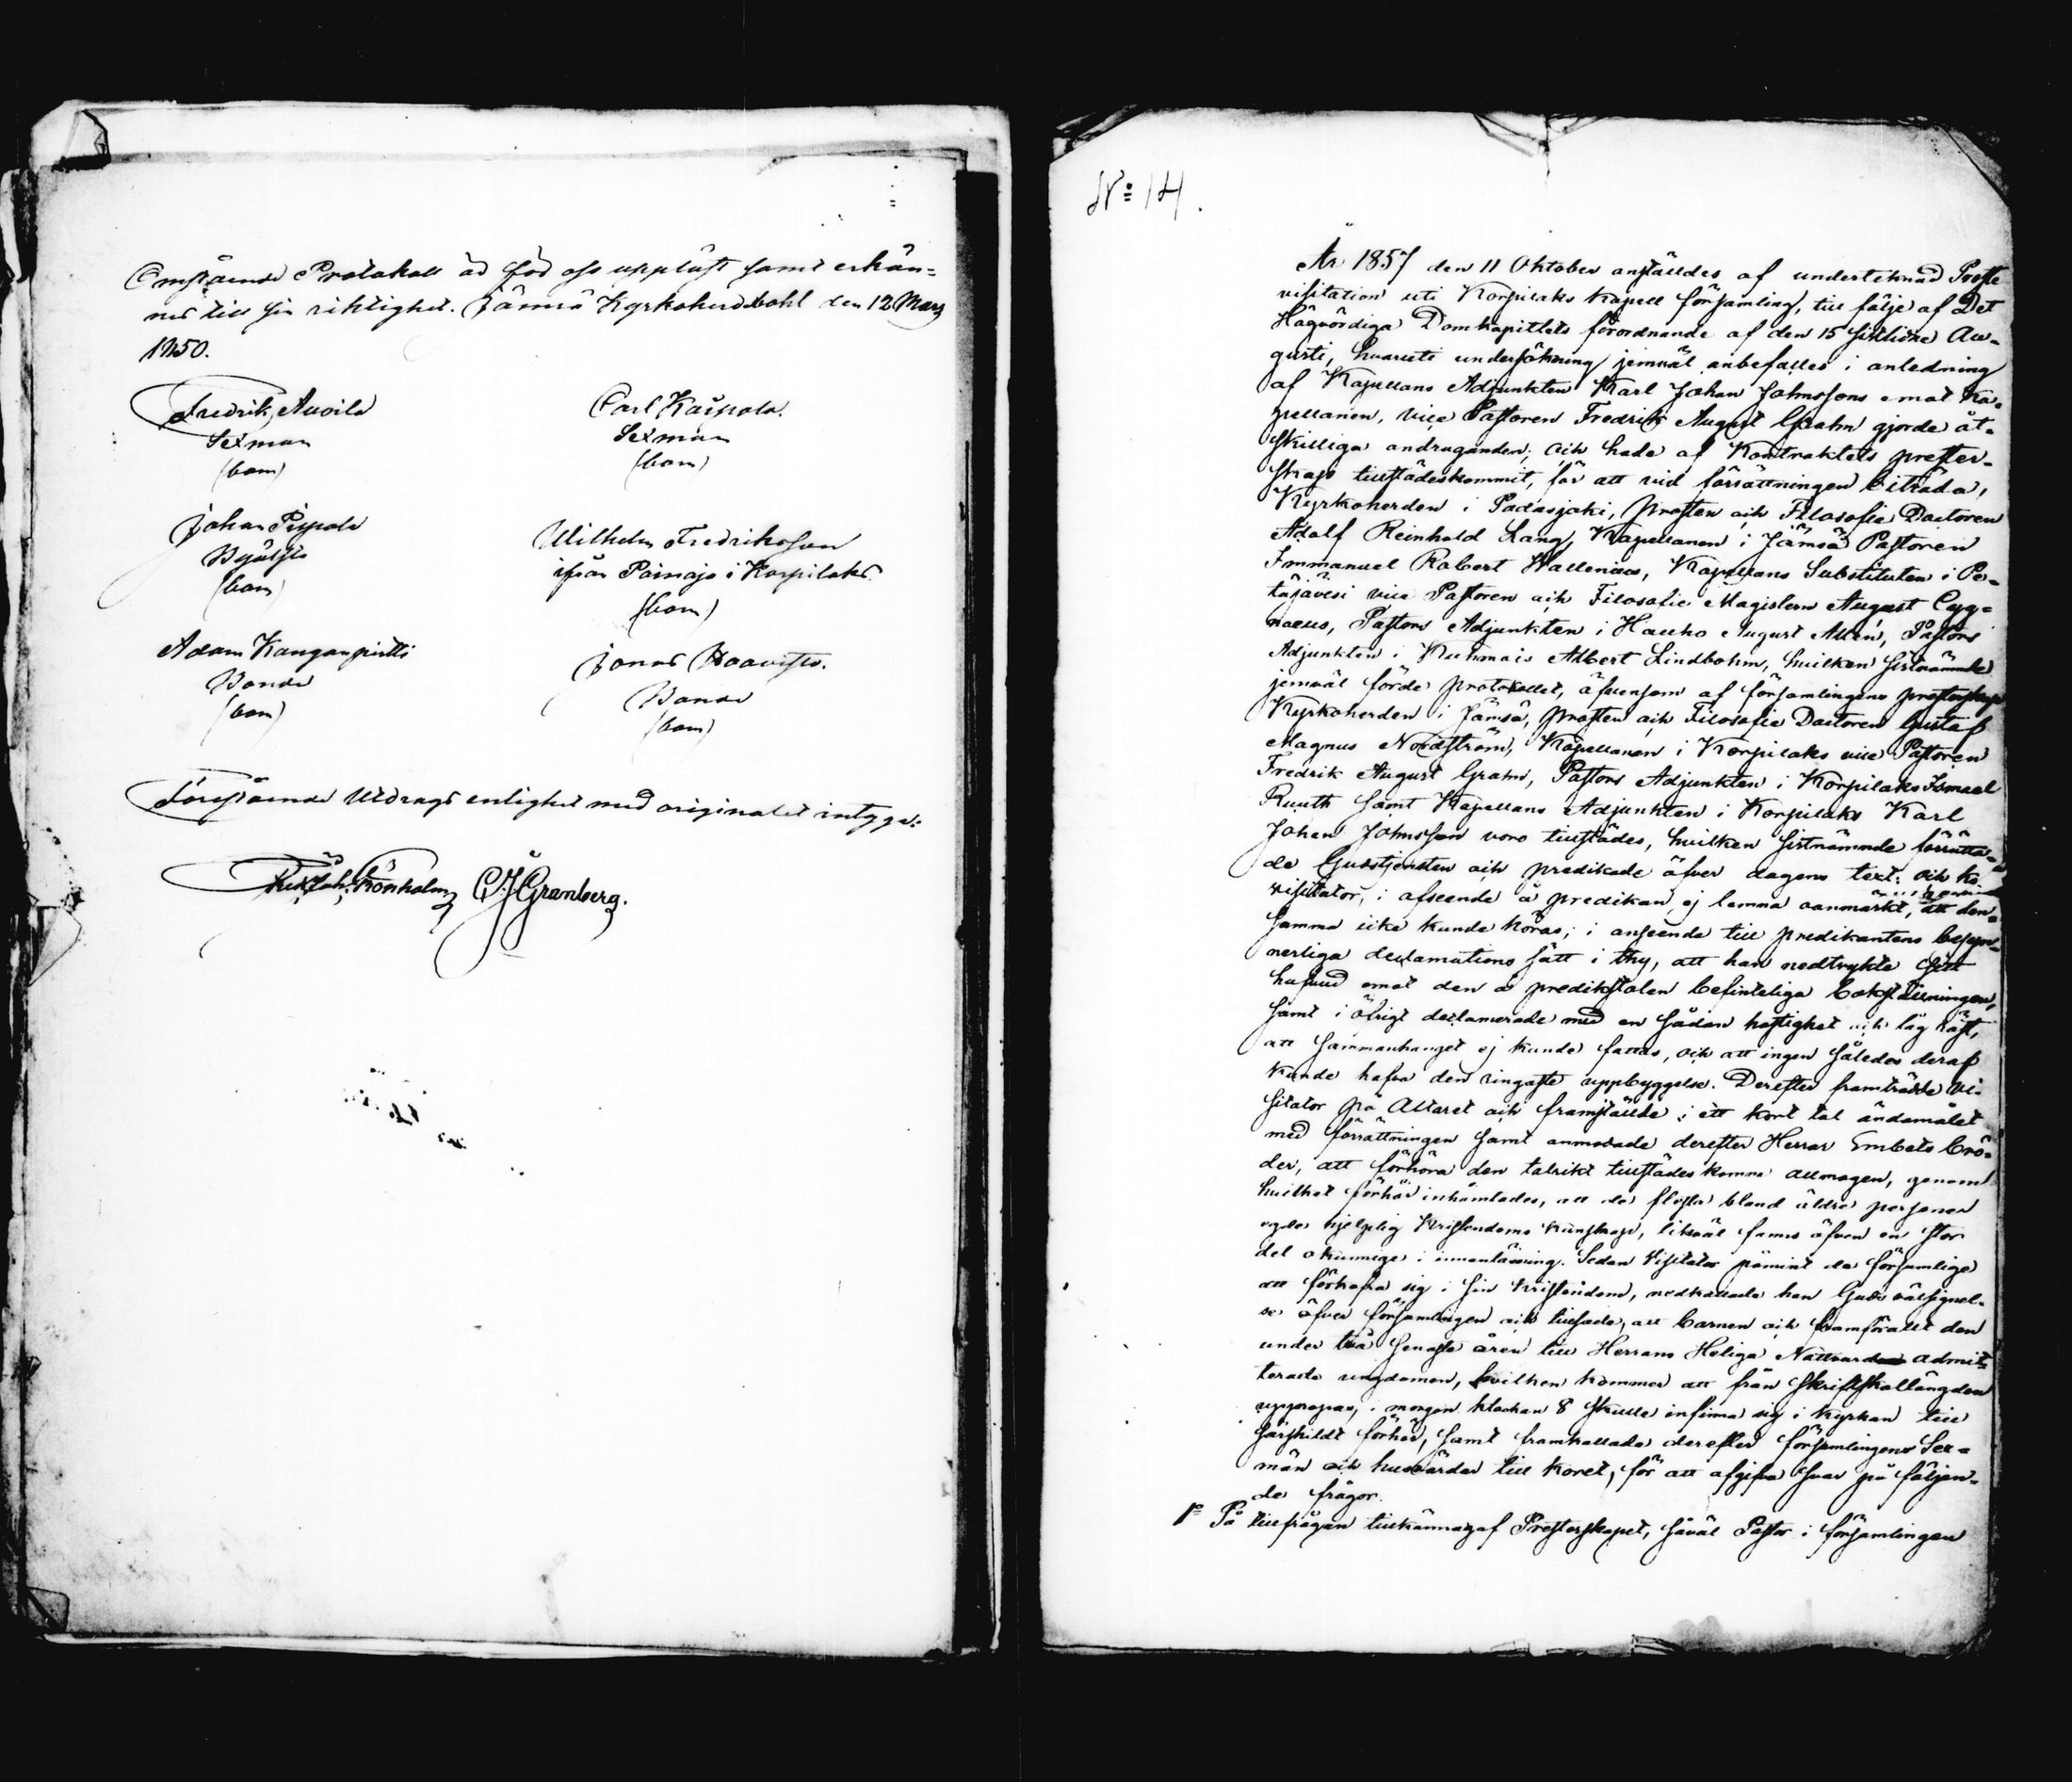 Omstående Protokoll är för oss uppläst samt erkän-
nes till sin riktighet. Jämsä Kyrkoherdebohl den 12 Mars
1850.
Fredrik Auvila
Carl Kaipola.
Sexman
Sexman
(bom)
(bom)
Johan Pispala
Wilhelm Fredriksson
Byålds
ifrån Painajo i Korpilaks.
(bom)
(bom)
Adam Kanganpirtti
Jonas Haavisto.
Bonde
Bonde
(bom)
(bom)
Föregående Utdrags enlighet med originalet intyga:
CJGranberg.
No 14.
År 1857 den 11 Oktober anstäldes af undertecknad Prost
visitation uti Korpilaks Kapell församling, till följe af Det
Högvördiga Domkapitlets förordnande af den 15 sistlidne Au-
gusti, hvaruti undersökning jemväl anbefalles i anledning
af Kapellans Adjunkten Karl Johan Johnssons emot Ka-
pellanen, vice Pastoren Fredrik August Grahn gjorde åt-
skilliga andraganden; och hade af Kontraktets prester-
skap tillstädeskommit, för att vid förrättningen biträda,
Kyrkoherden i Padasjoki, Prosten och Filosofie Doctoren
Adolf Reinhold Lang, Kapellanen i Jämsä Pastoren
Immanuel Robert Wallenius, Kapellans Substituten i Pe-
täjävesi vice Pastoren och Filosofie Magistern August Cyg-
naeus, Pastors Adjunkten i Hauho August Allén, Pastors
Adjunkten i Kuhmois Albert Lindbohm, hvilken sistnämnde
jemväl förde protokollet, äfvensom af församlingens presterskap
Kyrkoherden i Jämsä, prosten och Filosofie Doctoren Gustaf
Magnus Nordström, Kapellanen i Korpilaks vice Pastoren
Fredrik August Grahn, Pastors Adjunkten i Korpilaks Ismael
Ruuth samt Kapellans Adjunkten i Korpilaks Karl
Johan Johnsson voro tillstädes, hvilken sistnämnde förrätta-
de Gudstjensten och predikade öfver dagens text; och
visitator, i afseende å predikan, ej lemna oanmärkt, att den-
samma icke kunde höras; i anseende till predikantens besyn-
nerliga declamations sätt i thy, att han nedtryckte sitt
hufvud emot den å predikstolen befinteliga bokställningen,
samt i öfrigt declamerade med en sådan hastighet och låg röst,
att sammanhanget ej kunde fattas, och att ingen således deraf
kunde hafva den ringaste uppbyggelse. Derefter framträdde Vi-
sitator på Altaret och framstälde i ett kort tal ändamålet
med förrättningen samt anmodade derefter Herrar Embets brö-
der, att förhöra den talrikt tillstädes komna allmogen, genom
hvilket förhör inhämtades, att de flesta bland äldre personer
egde hjelplig Kristendoms kunskap, likväl fanns äfven en stor
del okunnige i innanläsning. Sedan Visitator påmint de församlige
att förkofra sig i sin kristendom, nedkallade han Guds välsignel-
se öfver församlingen och tillsade, att barnen och framförallt den
under två senaste åren till Herrans Heliga Nattvard admit-
terade ungdomen, hvilken kommer att från Skriftskollängden
uppropas, i morgon klockan 8 skulle infinna sig i kyrkan till
särskildt förhör, samt framkallade derefter församlingens Sex-
män och husvärdar till koret, för att afgifva svar på följan-
de frågor.
1o På tillfrågan tillkännagaf Presterskapet, såväl Pastor i församlingen